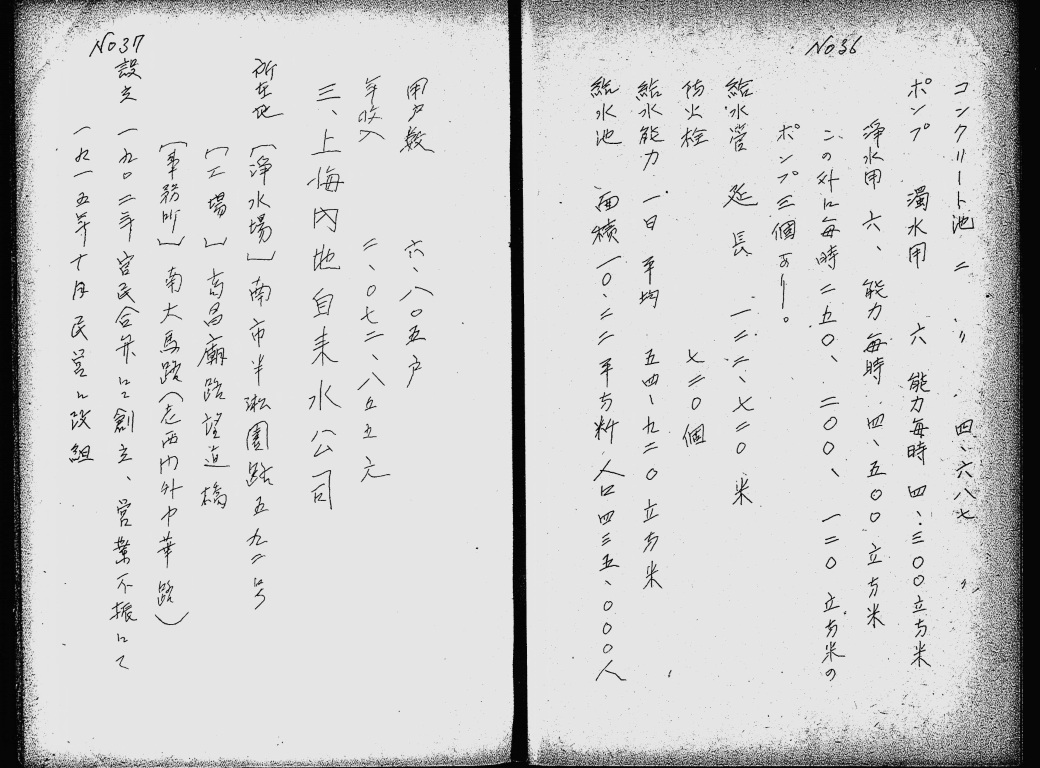 No 36
コンクリート池 二 〃 四、六八七 〃
ポンプ 濁水用 六 能力毎時 四、三〇〇立方米
浄水用 六、能力毎時 四、五〇〇立方米
この外に毎時二五〇、二〇〇、一二〇立方米の
ポンプ三個あり。
給水管 延長 一二二、七二〇米
防火栓 七二〇個
給水能力 一日平均 五四、九二〇立方米
給水池 面積一〇、二二平方粁 人口四三五、〇〇〇人
No 37
用戸数 六、八〇五戸
年収入 二、〇七二、八五五元
三、上海内地自来水公司
所在地 〔浄水場〕南市半淞園路五九二号
〔工場〕高昌廟路望道橋
〔事務所〕南大馬路(老西門外中華路)
設立 一九〇二年官民合弁に創立、営業不振にて
一九一五年十月民営に改組